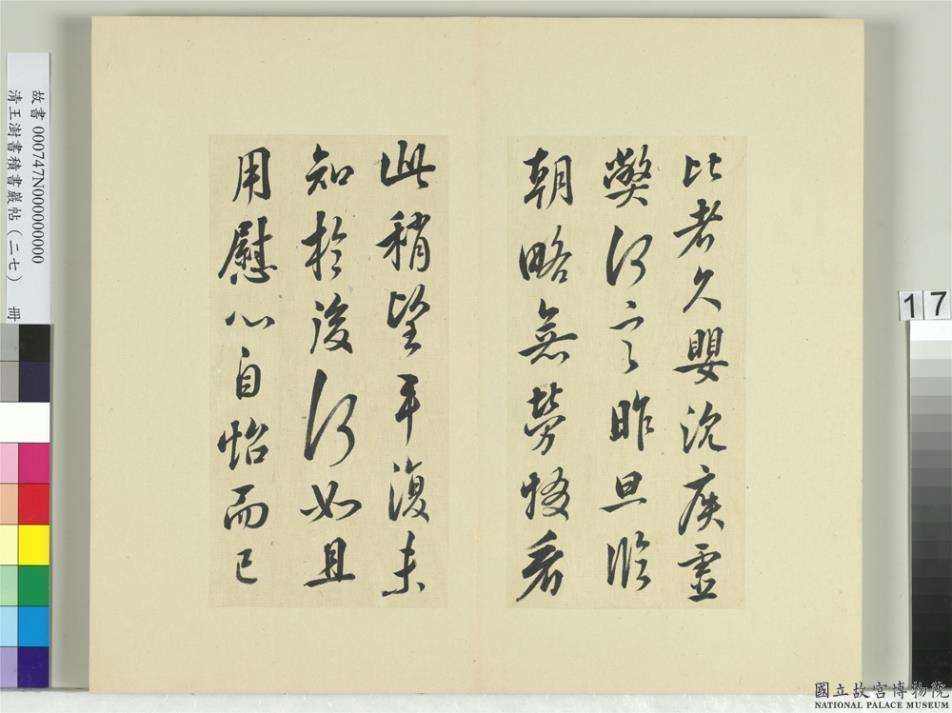 比者久嬰沉疾虛
弊何言昨旦臨
朝略無勞弊看
此稍望平復未
知於後何如且
用慰心自怡而已
故書 000747N000000000
清王澍書積書巖帖(二七) 冊
17
國立故宮博物院
NATIONAL PALACE MUSEUM